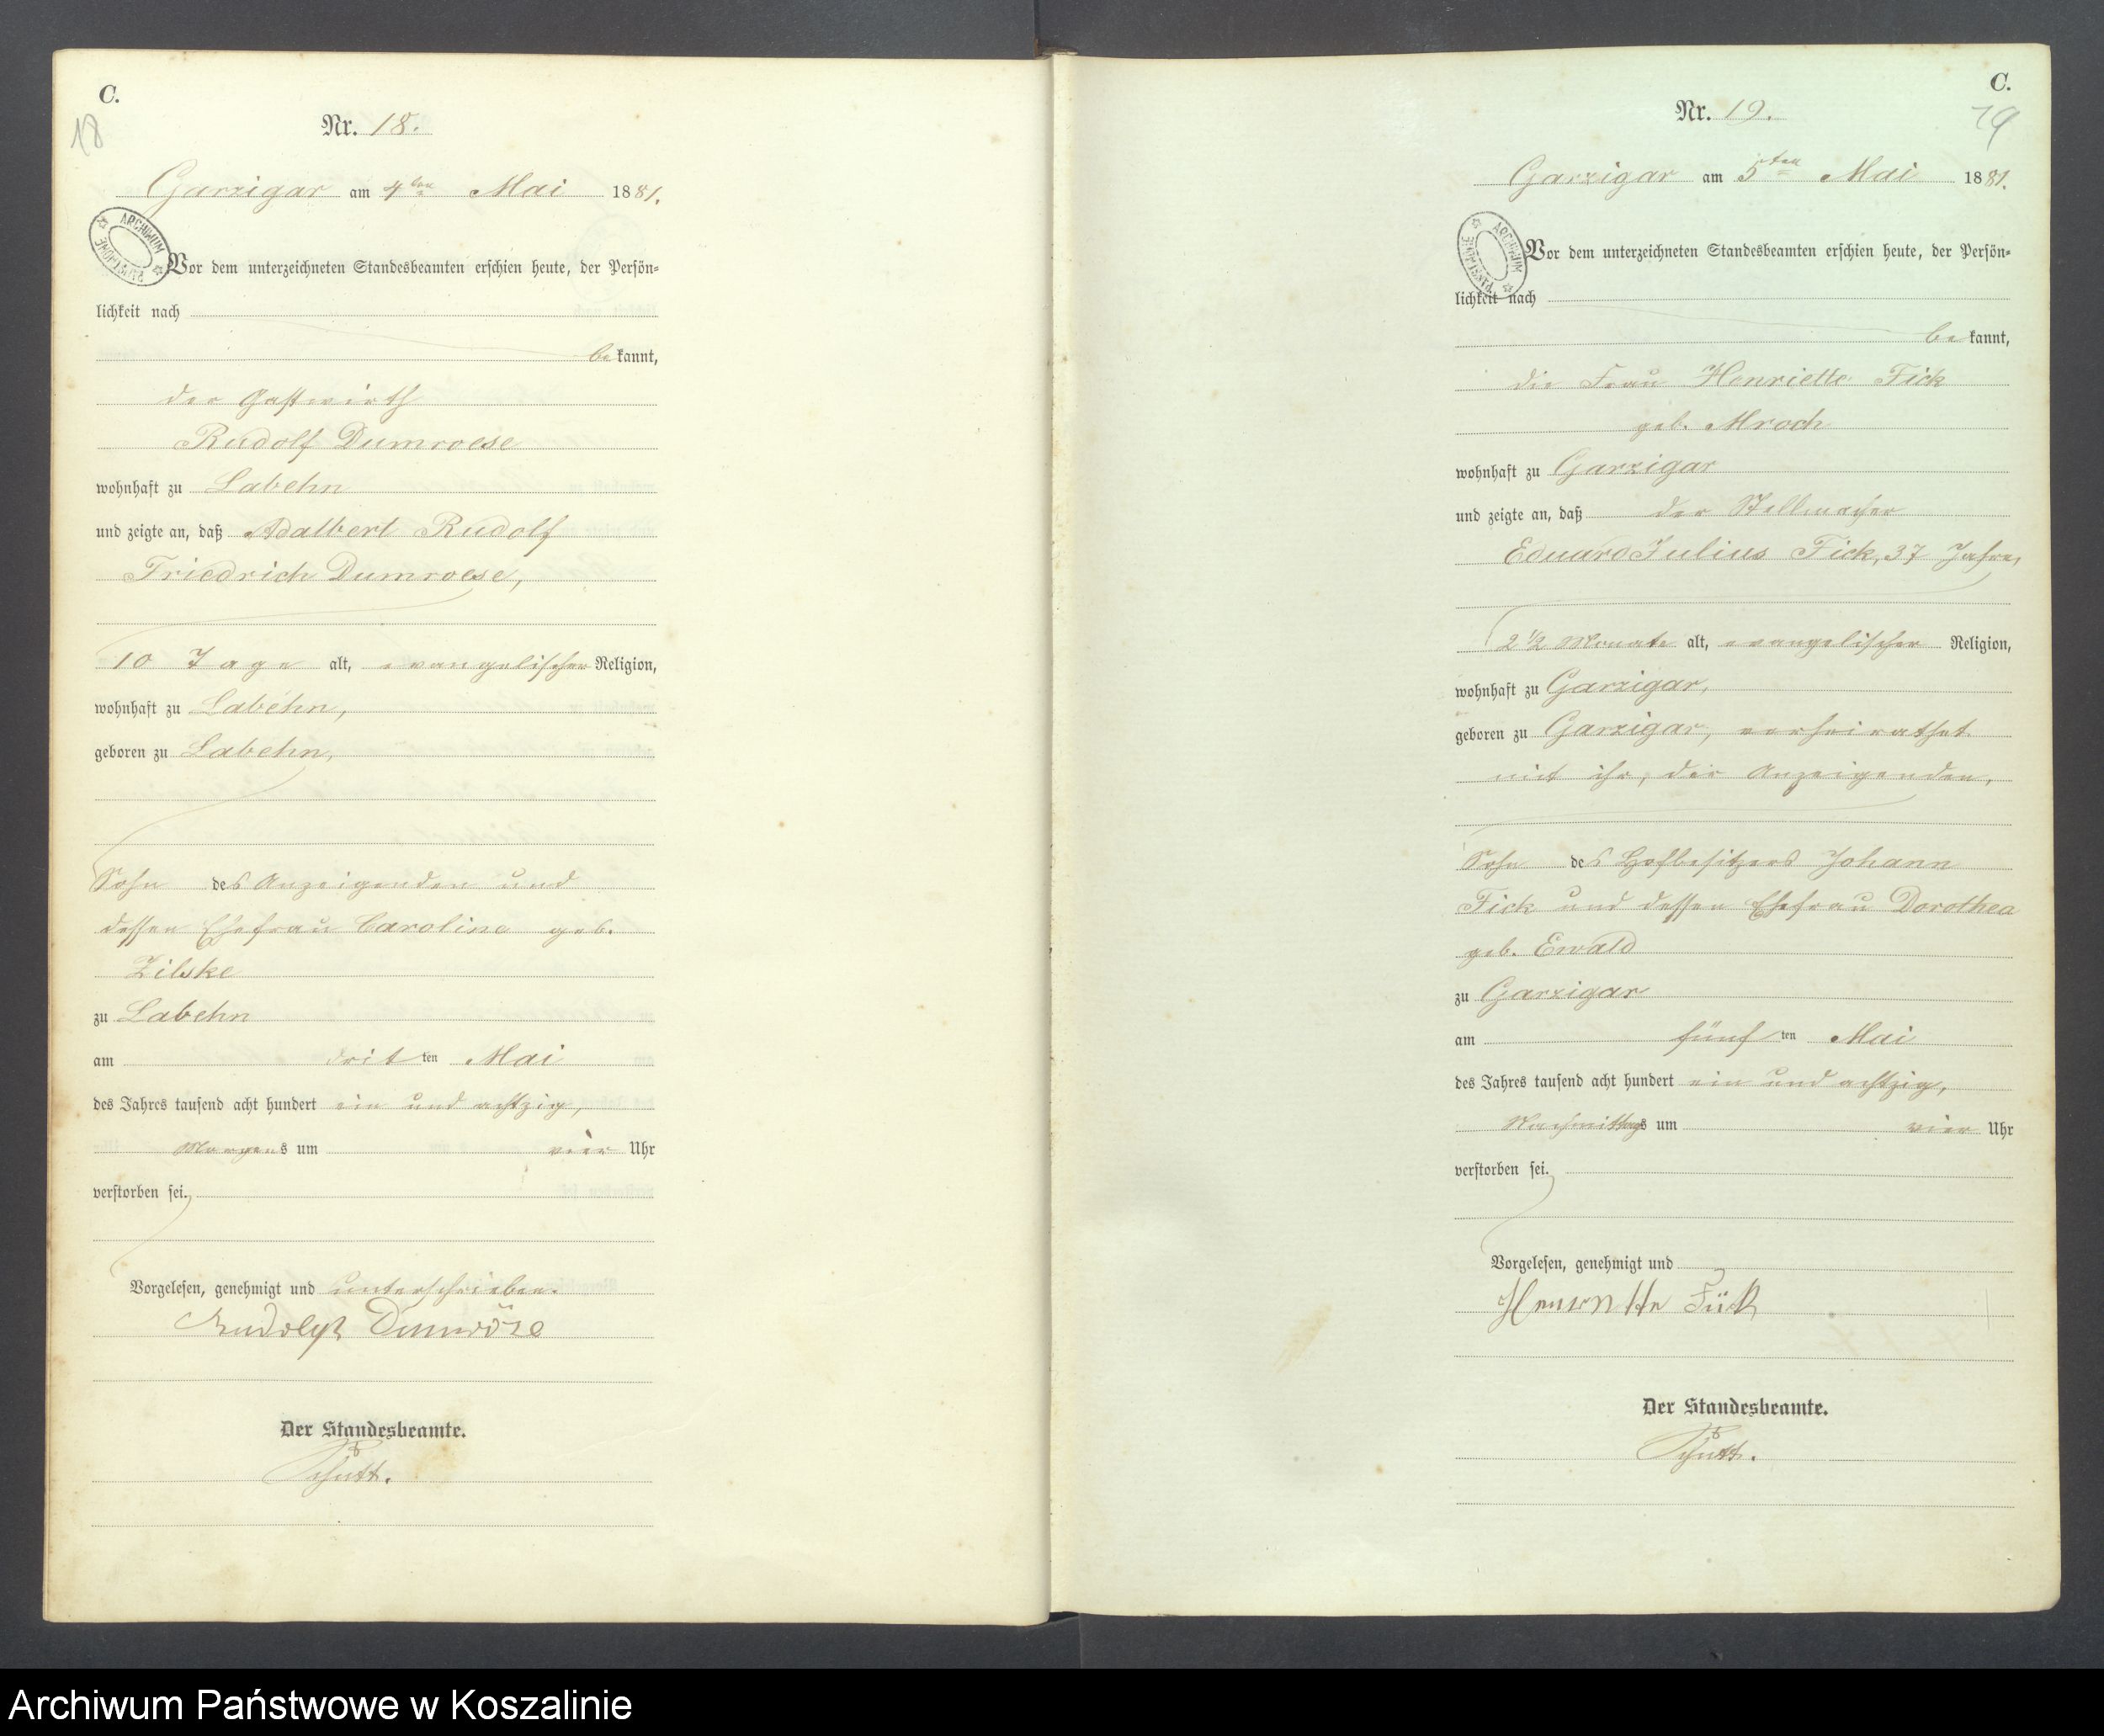 C.
18
Nr. 18.
Garzigar am 4ten Mai 1881.
ARCHIWUM PAŃSTWOWE
Vor dem unterzeichneten Standesbeamten erschien heute, der Persön-
lichkeit nach
bekannt,
der Gastwirth
Rudolf Dumroese
wohnhaft zu Labehn
und zeigte an, daß Adalbert Rudolf
Friedrich Dumroese,
10 Tage alt, evangelischer Religion,
wohnhaft zu Labehn,
geboren zu Labehn,
Sohn des Anzeigenden und
dessen Ehefrau Caroline geb.
Zilske
zu Labehn
am dritten Mai
des Jahres tausend acht hundert ein und achtzig,
Morgens um vier Uhr
verstorben sei.
Vorgelesen, genehmigt und unterschrieben.
Rudolph Dumröse
Der Standesbeamte.
Schütt.
C.
19
Nr. 19.
Garzigar am 5ten Mai 1881.
ARCHIWUM PAŃSTWOWE
Vor dem unterzeichneten Standesbeamten erschien heute, der Persön-
lichkeit nach
bekannt,
die Frau Henriette Fick
geb. Mroch
wohnhaft zu Garzigar
und zeigte an, daß der Stellmacher
Eduard Julius Fick, 37 Jahre,
2 1/2 Monate alt, evangelischer Religion,
wohnhaft zu Garzigar,
geboren zu Garzigar, verheirathet
mit ihr, der Anzeigenden,
Sohn des Hofbesitzers Johann
Fick und dessen Ehefrau Dorothea
geb. Ewald
zu Garzigar
am fünften Mai
des Jahres tausend acht hundert ein und achtzig,
Nachmittags um vier Uhr
verstorben sei.
Vorgelesen, genehmigt und
Henriette Fük
Der Standesbeamte.
Schütt.
Archiwum Państwowe w Koszalinie